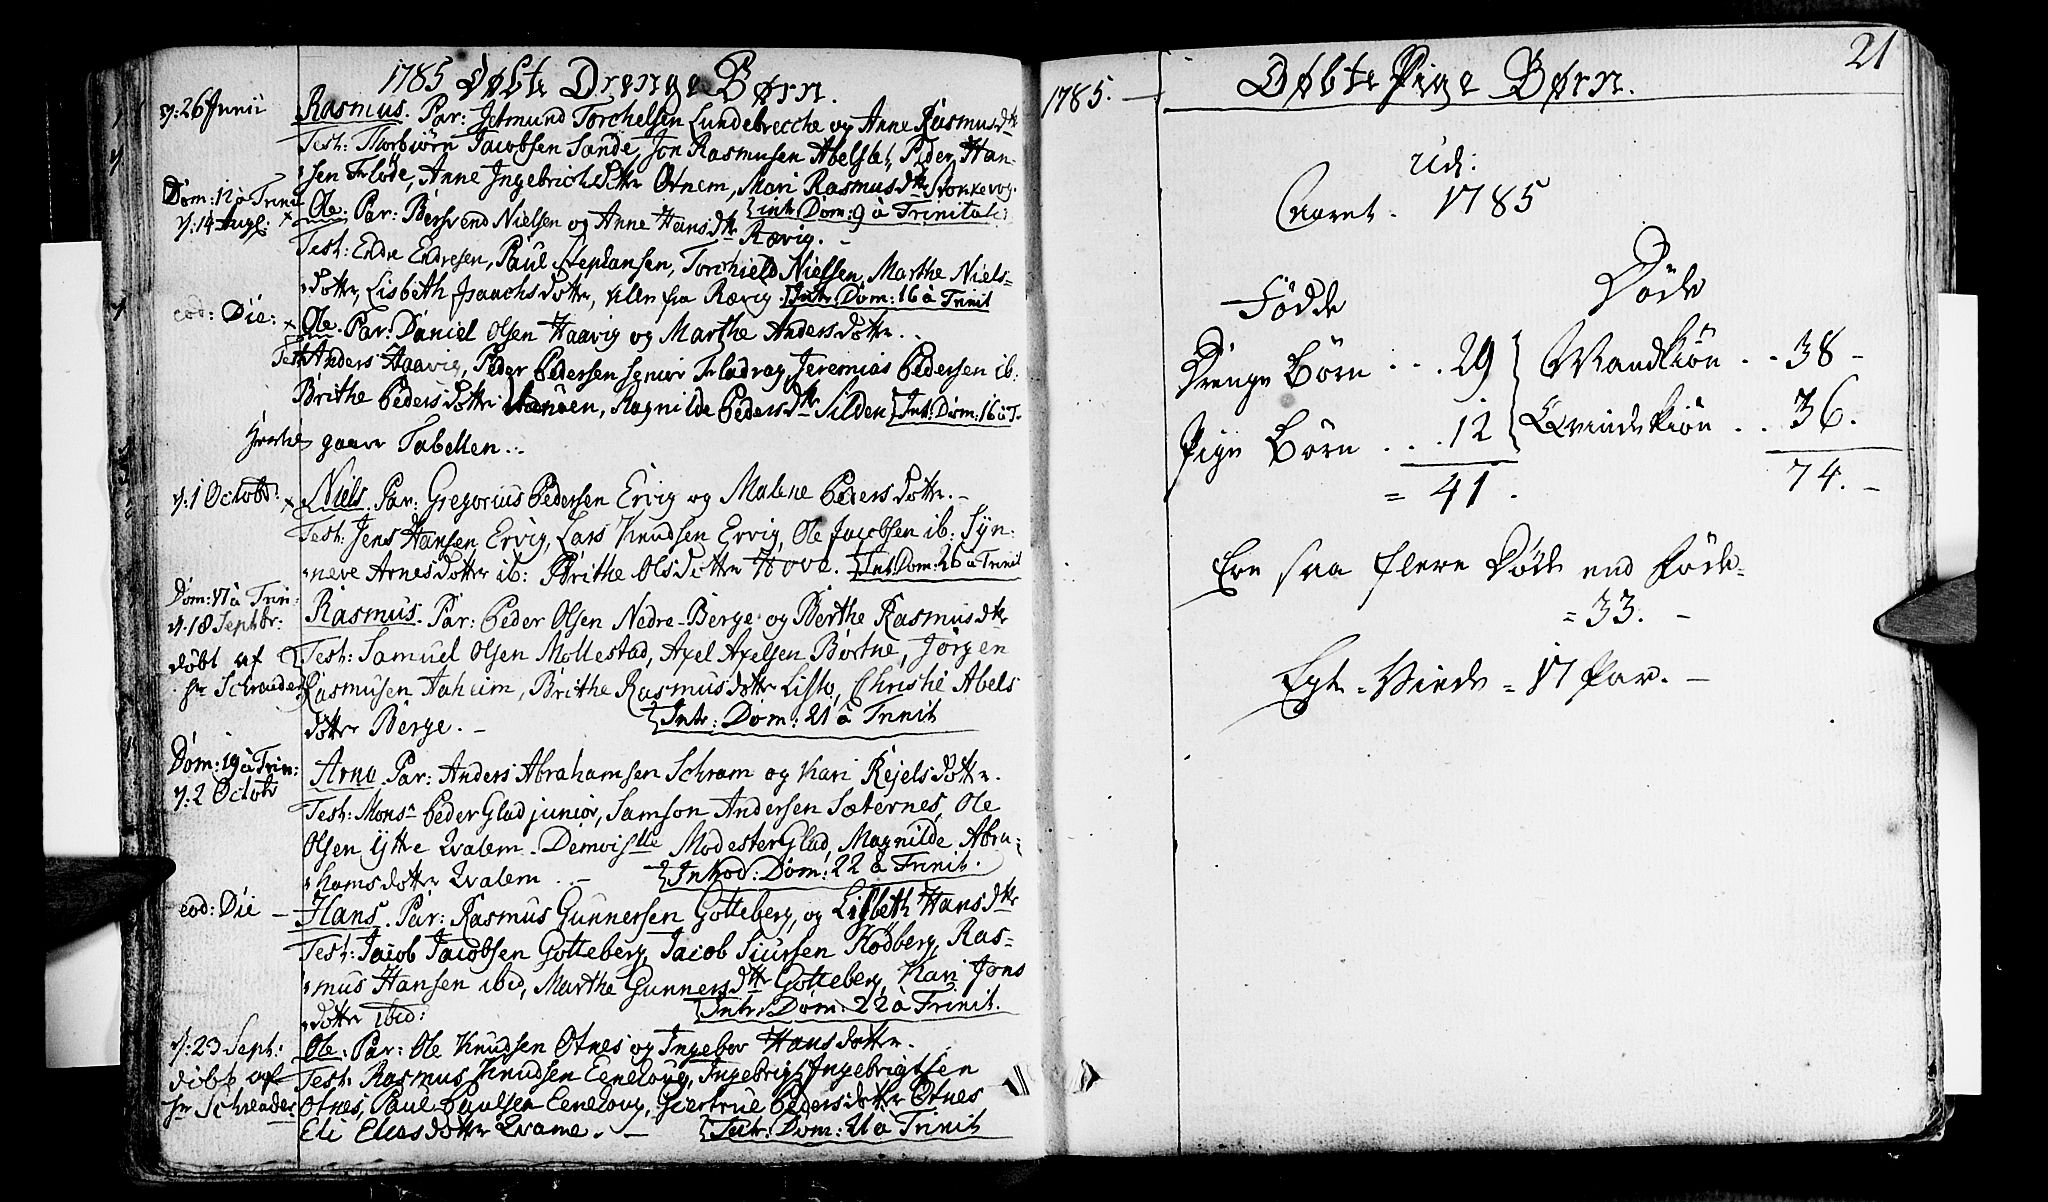 1785 Døbte Drenge Børn.
d: 26 Junii Rasmus. Par: Jetmund Torchelsen Lundebrecche og Anne Rasmusdttr
Test: Thorbiørn Jacobsen Sande, Jon Rasmusen Abelset, Peder Han-
sen Flöde, Anne Ingebrichsdttr Otnem, Mari Rasmusdttr Stokkevog.
Dom: 12 à Trinit {intr: Dom: 9 à Trinitat:
d: 14 Aug: x Ole. Par: Bersvend Nielsen og Anne Hansdttr Rævig. -
Test: Endre Endresen, Paul Stephansen, Torchield Nielsen, Marthe Niels-
dotter, Lisbeth Isaachsdotter, alle fra Rævig. {Intr: Dom: 16 à Trinit
eod: Die: x Ole. Par: Daniel Olsen Haavig og Marthe Andersdotter.
Test: Anders Haavig, Peder Pedersen senior Fladrag, Jeremias Pedersen ib:
Brithe Pedersdotter Vanöen, Magnilde Pedersdttr Silden {Int: Dom: 16 à T.
gaaer Tabellen.
d: 1 Octobr: x Niels. Par: Gregorius Pedersen Ervig og Malene Pedersdotter. -
Test: Jens Hansen Ervig, Lars Knudsen Ervig, Ole Jacobsen ib: Syn-
neve Arnesdotter ib: Brithe Olsdotter Hove. {Int: Dom: 26 à Trinit
Dom: 17 à Trin:
d. 18 Septbr: Rasmus. Par: Peder Olsen Nedre-Berge og Berthe Rasmusdttr
döbt af Test: Samuel Olsen Mollestad, Axel Axelsen Börtne, Jörgen
Hr Schreuder Rasmusen Aaheim, Brithe Rasmusdotter Listo, Christie Abels
dotter Berge. - {Intr: Dom: 21 à Trinit
Dom: 19 à Trin: Arne. Par: Anders Abrahamsen Schram og Kari Rejelsdotter.
d: 2 Octobr Test: Monsr Peder Glad junior, Samson Andersen Sæternes, Ole
Olsen Ytre Qvalem. Demoiselle Modester Glad, Magnilde Abra-
hamsdotter Qvalem. - {Introd: Dom: 22 à Trinit.
eod: Die - Hans. Par: Rasmus Gunnersen Gotteberg, og Lisbeth Hansdttr
Test: Jacob Jacobsen Gotteberg, Jacob Siursen Rödberg, Ras-
mus Hansen ibid, Marthe Gunnersdttr Gotteberg, Kari Jons
dotter ibid: {Intr: Dom: 22 à Trinit.
d: 23 Sept: Ole: Par: Ole Knudsen Otnes og Ingebor Hansdotter.
döbt af Test: Rasmus Knudsen Eeneloug, Ingebrigt Ingebrigtsen
Hr Schreuder Otnes, Paul Paulsen Eeneloug, Giertrue Pedersdotter Otnes
Eli Eliasdotter Qvame. - {Intr: Dom: 21 à Trinit
21
1785. - Døbte Pige Børn.
Ud:
Aaret. 1785
Födde Döde
Drenge Börn . . . 29 } Mandkiön . . 38 -
Pige Börn . . . 12 } Qvindekiön . . 36.
= 41. 74. -
Ere saa flere Döde end Föde-
= 33. -
Egte-Viede = 17 Par. -